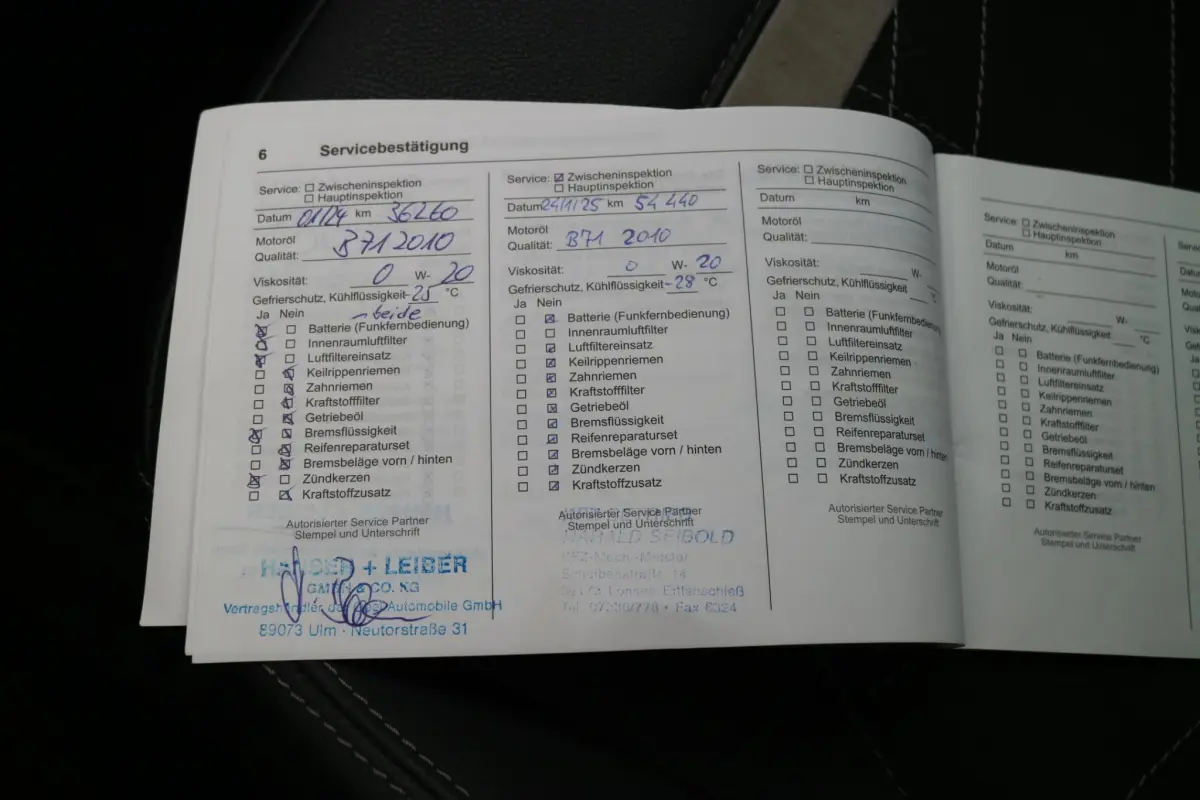 6 Servicebestätigung
Service: ☐ Zwischeninspektion
☐ Hauptinspektion
Datum 01/24 km 36260
Motoröl
Qualität: B71 2010
Viskosität: 0 W- 20
Gefrierschutz, Kühlflüssigkeit -25 °C
Ja Nein - beide
☒ ☐ Batterie (Funkfernbedienung)
☒ ☐ Innenraumluftfilter
☒ ☐ Luftfiltereinsatz
☐ ☒ Keilrippenriemen
☐ ☒ Zahnriemen
☐ ☒ Kraftstofffilter
☐ ☒ Getriebeöl
☒ ☐ Bremsflüssigkeit
☐ ☒ Reifenreparaturset
☐ ☒ Bremsbeläge vorn / hinten
☒ ☐ Zündkerzen
☐ ☒ Kraftstoffzusatz
Autorisierter Service Partner
Stempel und Unterschrift
+ LEIBER
GMBH & CO. KG
Vertragshändler der Opel Automobile GmbH
89073 Ulm · Neutorstraße 31
Service: ☒ Zwischeninspektion
☐ Hauptinspektion
Datum 24/1/25 km 54 440
Motoröl
Qualität: B71 2010
Viskosität: 0 W- 20
Gefrierschutz, Kühlflüssigkeit -28 °C
Ja Nein
☐ ☒ Batterie (Funkfernbedienung)
☐ ☐ Innenraumluftfilter
☐ ☒ Luftfiltereinsatz
☐ ☒ Keilrippenriemen
☐ ☒ Zahnriemen
☐ ☒ Kraftstofffilter
☐ ☒ Getriebeöl
☐ ☒ Bremsflüssigkeit
☐ ☒ Reifenreparaturset
☐ ☒ Bremsbeläge vorn / hinten
☐ ☒ Zündkerzen
☐ ☒ Kraftstoffzusatz
Autorisierter Service Partner
Stempel und Unterschrift
HARALD SEIBOLD
KFZ-Mech.-Meister
14
Lonsee Ettlenschieß
Tel. · Fax 6324
Service: ☐ Zwischeninspektion
☐ Hauptinspektion
Datum km
Motoröl
Qualität:
Viskosität: W-
Gefrierschutz, Kühlflüssigkeit °C
Ja Nein
☐ ☐ Batterie (Funkfernbedienung)
☐ ☐ Innenraumluftfilter
☐ ☐ Luftfiltereinsatz
☐ ☐ Keilrippenriemen
☐ ☐ Zahnriemen
☐ ☐ Kraftstofffilter
☐ ☐ Getriebeöl
☐ ☐ Bremsflüssigkeit
☐ ☐ Reifenreparaturset
☐ ☐ Bremsbeläge vorn / hinten
☐ ☐ Zündkerzen
☐ ☐ Kraftstoffzusatz
Autorisierter Service Partner
Stempel und Unterschrift
Service: ☐ Zwischeninspektion
☐ Hauptinspektion
Datum km
Motoröl
Qualität:
Viskosität: W-
Gefrierschutz, Kühlflüssigkeit °C
Ja Nein
☐ ☐ Batterie (Funkfernbedienung)
☐ ☐ Innenraumluftfilter
☐ ☐ Luftfiltereinsatz
☐ ☐ Keilrippenriemen
☐ ☐ Zahnriemen
☐ ☐ Kraftstofffilter
☐ ☐ Getriebeöl
☐ ☐ Bremsflüssigkeit
☐ ☐ Reifenreparaturset
☐ ☐ Bremsbeläge vorn / hinten
☐ ☐ Zündkerzen
☐ ☐ Kraftstoffzusatz
Autorisierter Service Partner
Stempel und Unterschrift